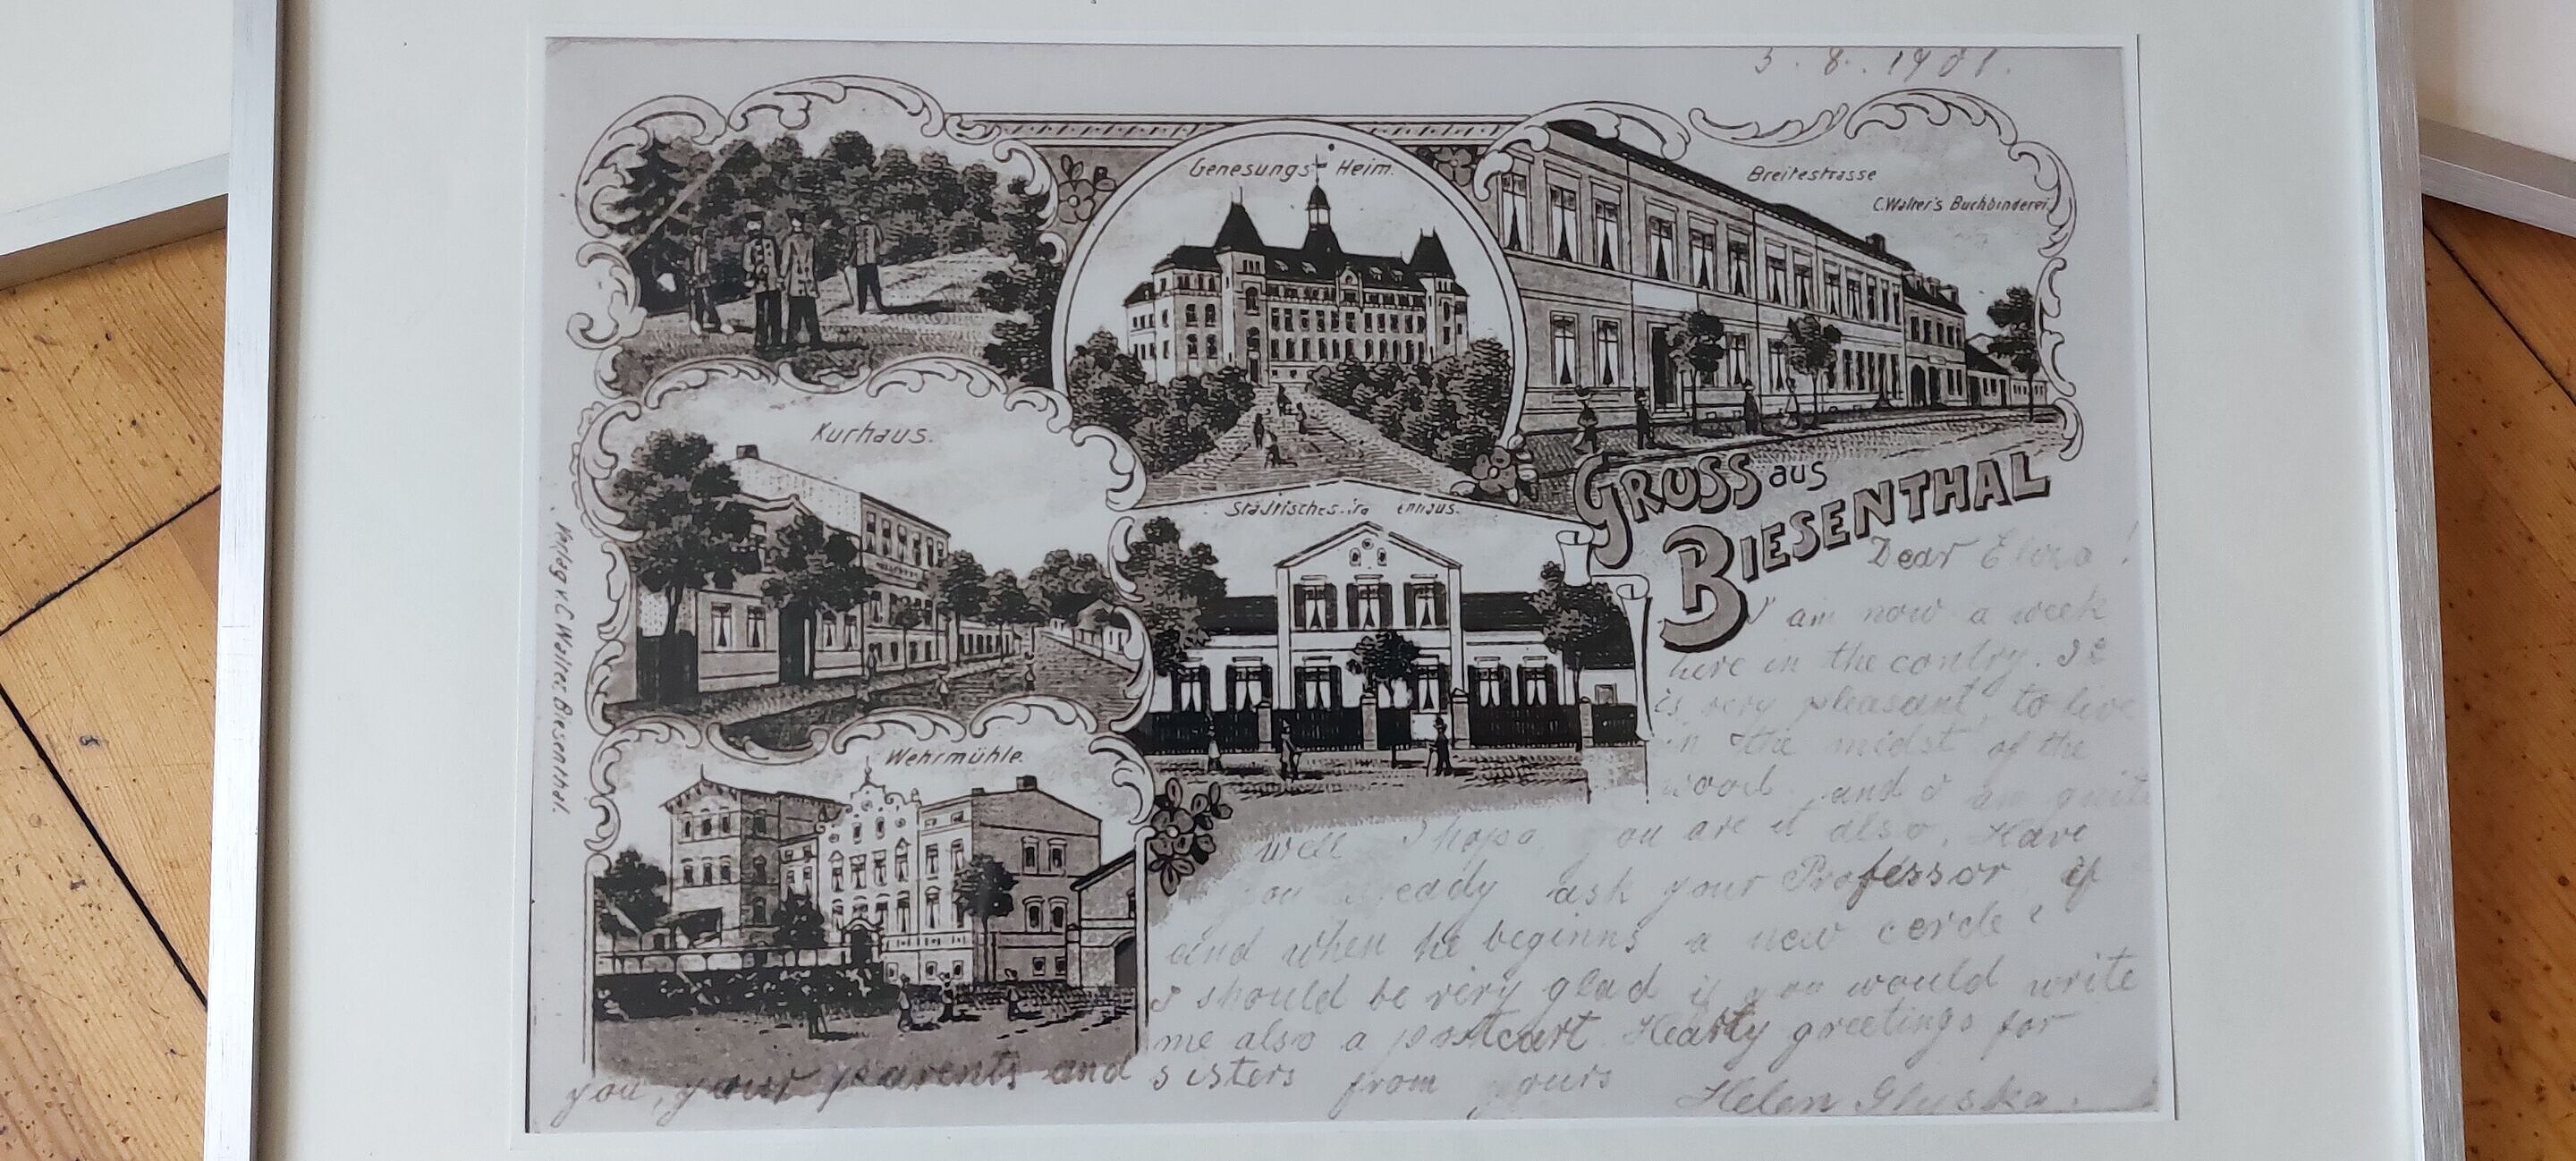 3. 8. 1901.
Genesungs-Heim.
Breitestrasse
C. Walter's Buchbinderei.
Kurhaus.
Städtisches
GRUSS aus
BIESENTHAL
Wehrmühle.
Verlag v. C. Walter, Biesenthal.
Dear
I am now a week
here in the contry. It
is very pleasant to live
in the midst of the
wood and I am quite
well I hope you are it also. Have
you already ask your Professor if
and when he beginns a new cercle?
I should be very glad if you would write
me also a postcart. Hearty greetings for
you, your parents and sisters from yours
Helen